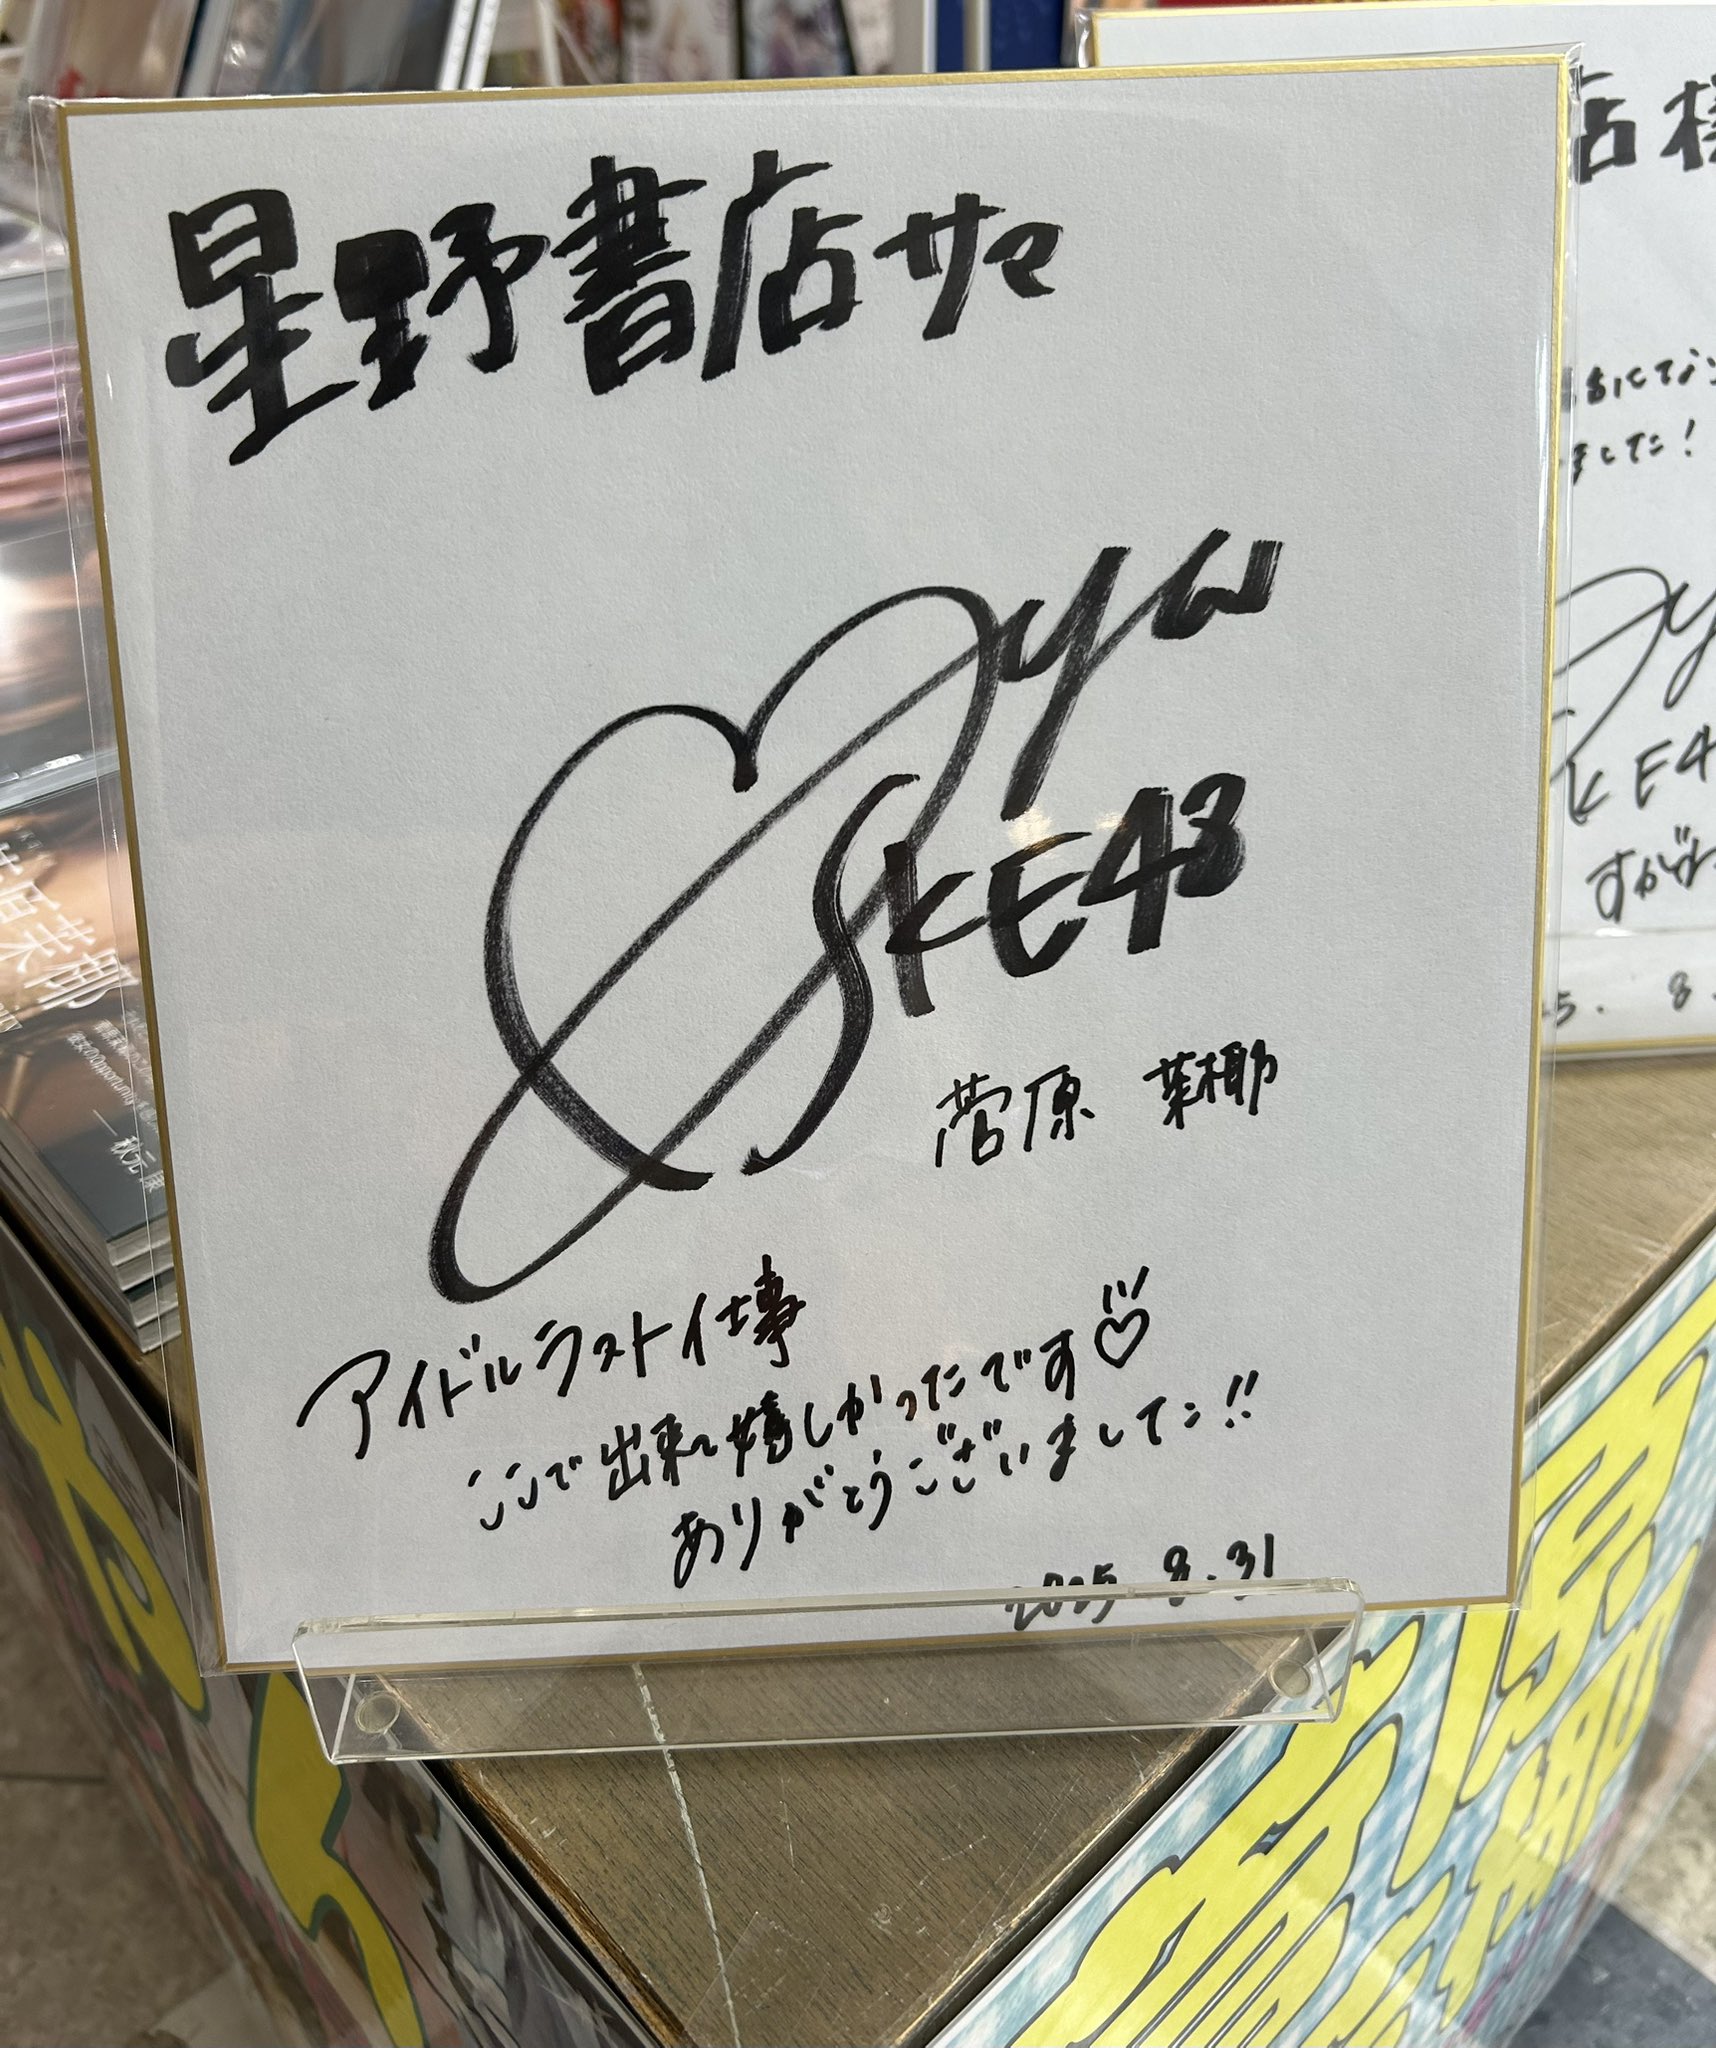 星野書店サマ
aya
SKE48
菅原 茉椰
アイドルラスト仕事
ここで出来て嬉しかったです♡
ありがとうございました!!
2025.8.31
店様
ました!
KE4
すがわ
5. 8.
原茉椰
秋元康